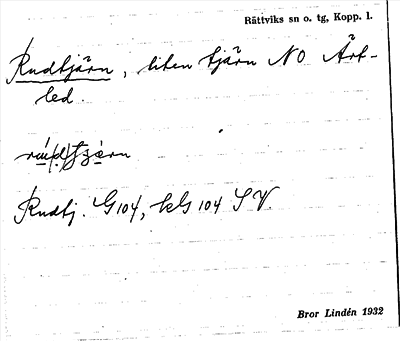 Rättviks sn o. tg, Kopp. l.
Rudtjärn, liten tjärn NO Ärt-
led.
Rudtj. G 104, kG 104 SV.
Bror Lindén 1932